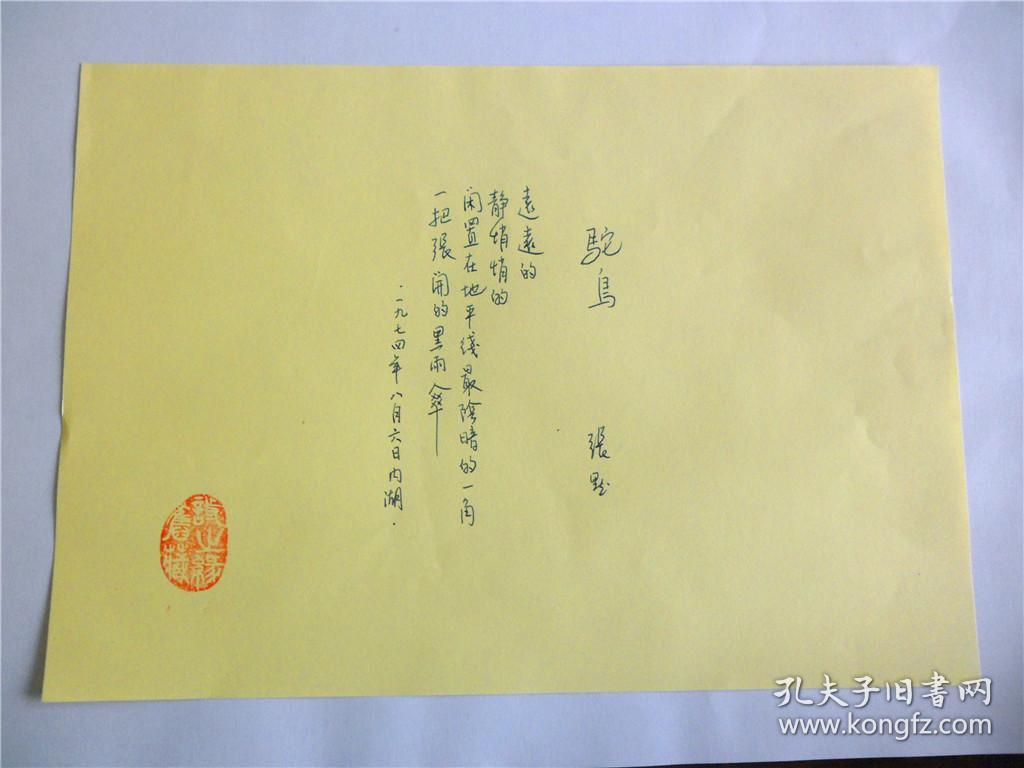 駝鳥
張默
遠遠的
静悄悄的
閑置在地平綫最陰暗的一角
一把張開的黑雨傘
·一九七四年八月六日内湖·
誠之緣
舊藏
孔夫子旧書网
www.kongfz.com